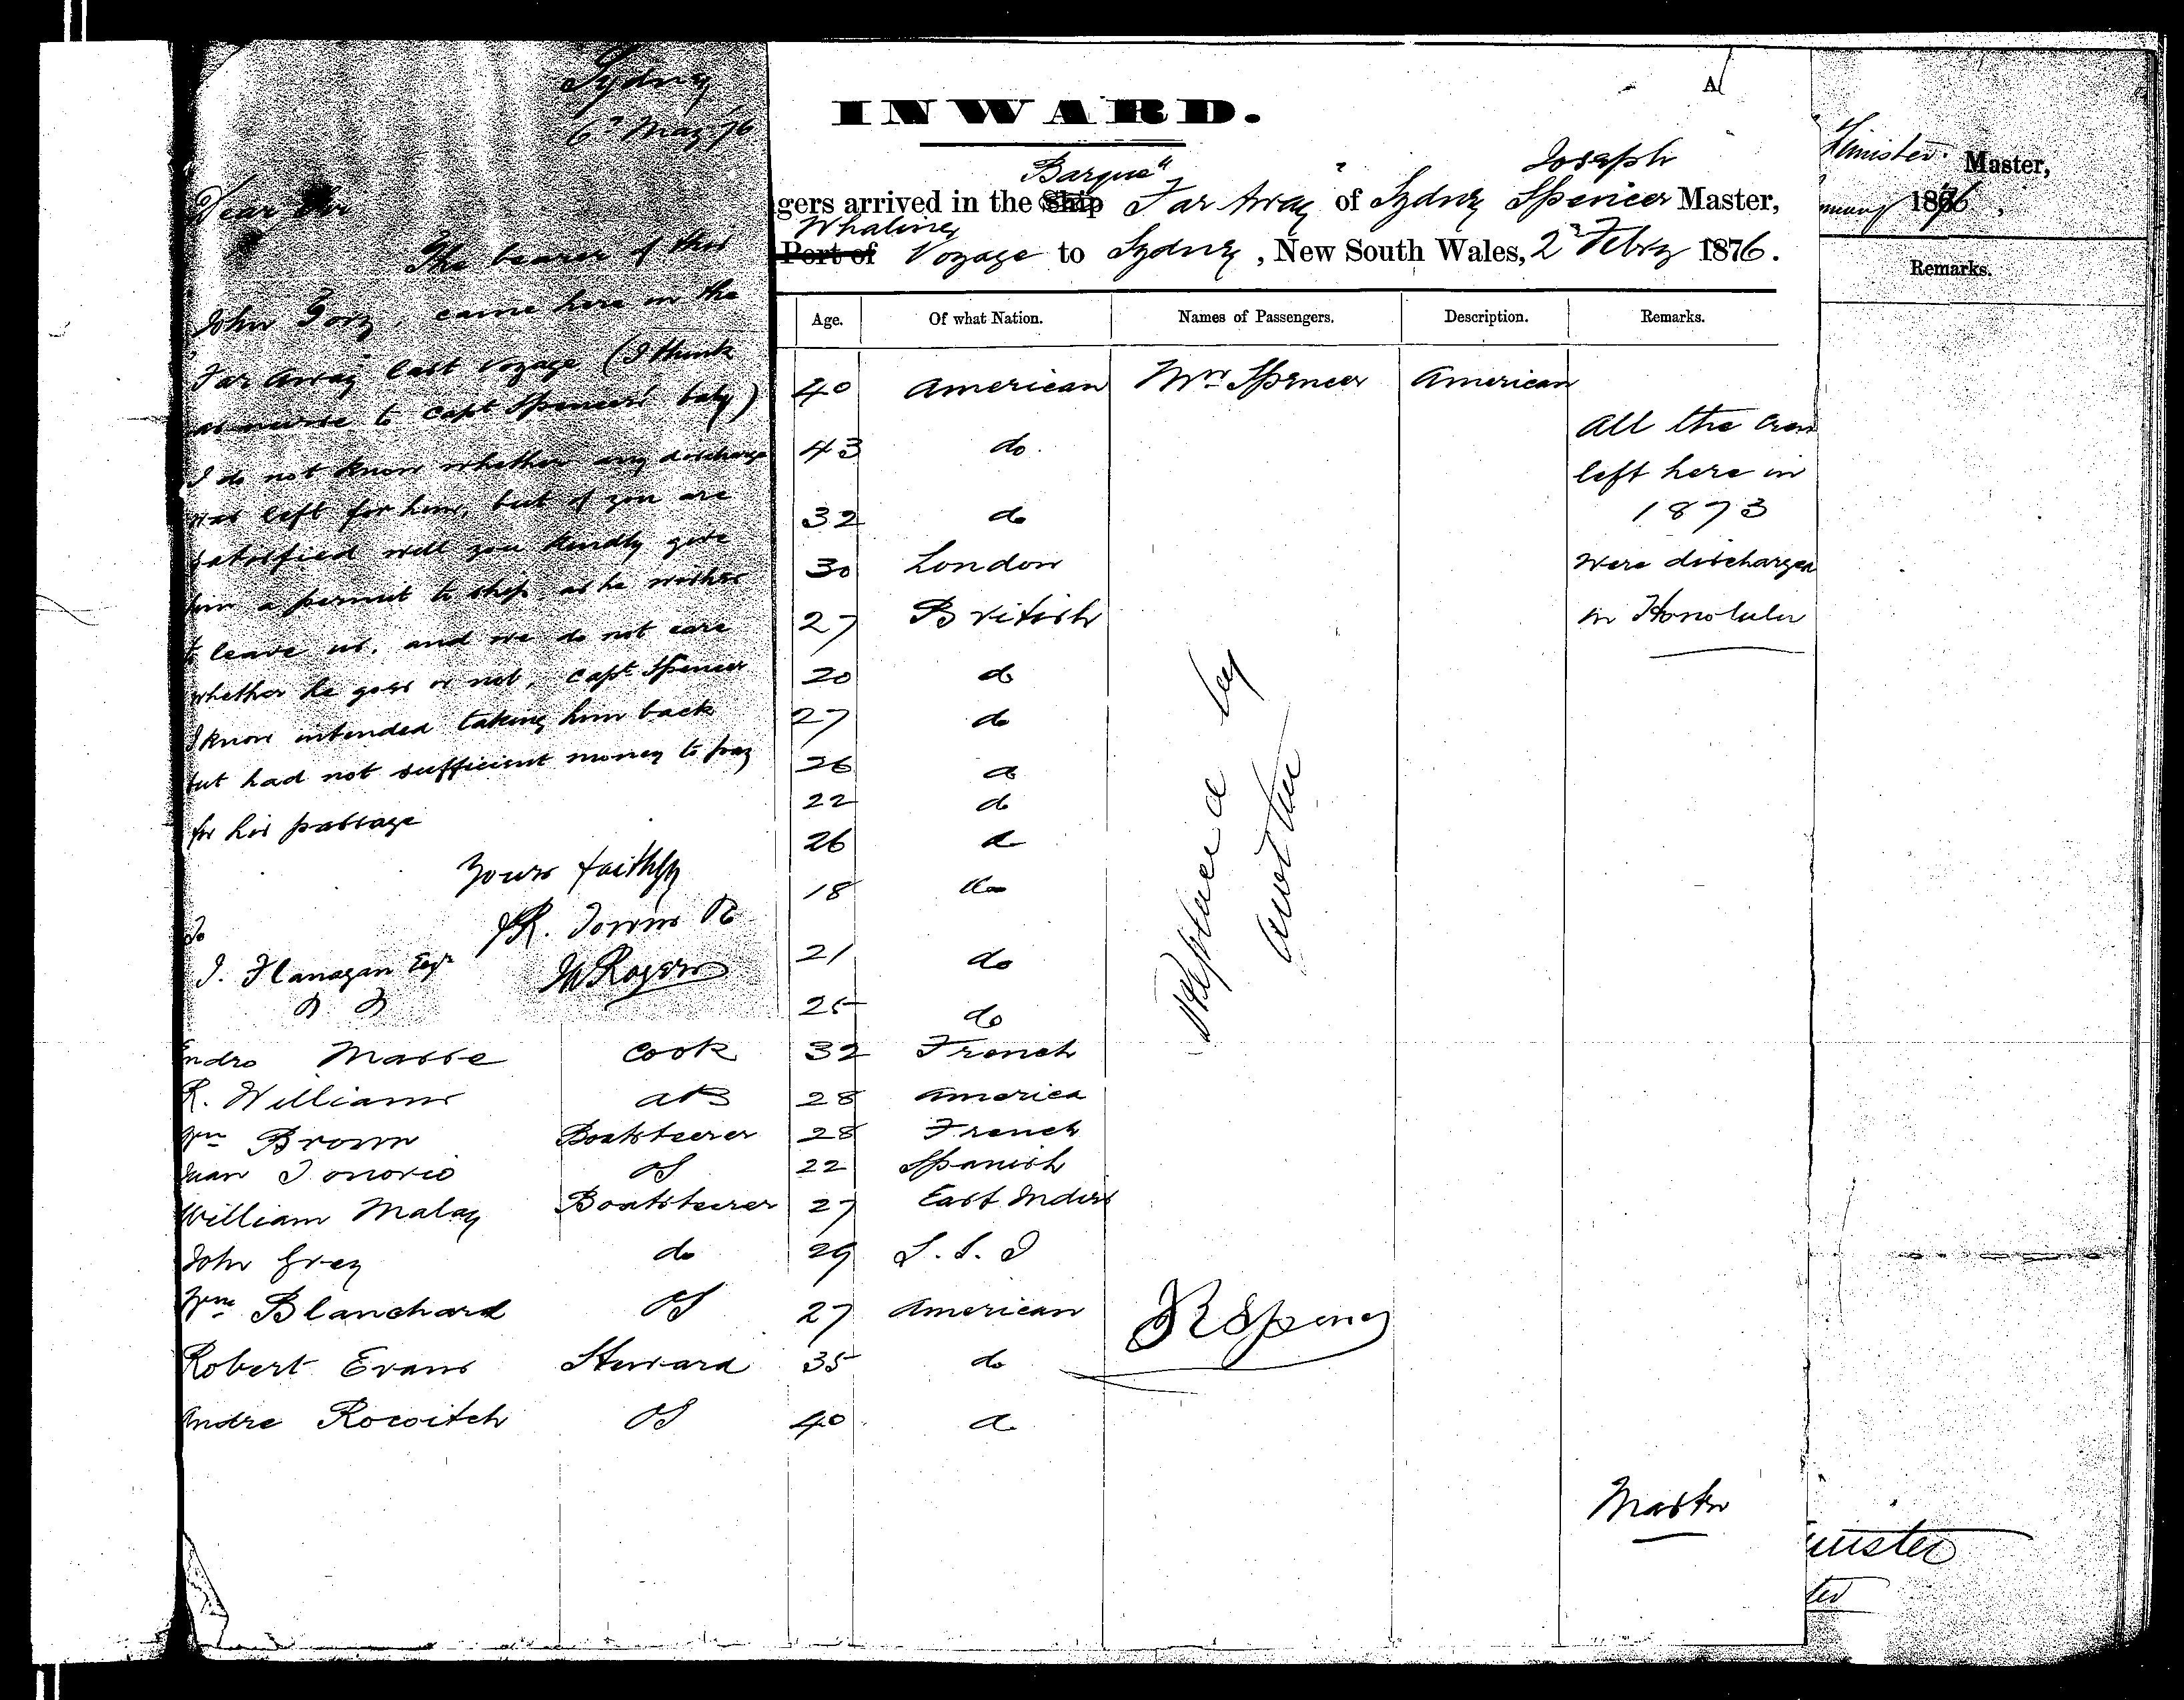 Sydney
6th May 76
Dear Sir
The bearer of this
John Gory, came here in the
Far Away last voyage (I think
as nurse to Capt Spencers baby)
I do not know whether any discharge
was left for him, but if you are
satisfied will you kindly give
him a permit to ship as he wishes
to leave us, and we do not care
whether he goes or not, Capt Spencer
I know intended taking him back
but had not sufficient money to pay
for his passage
Yours faithfy
R. Towns
To
J. Flanagan Esqr
W Rogers
INWARD.
A
Barque Joseph
gers arrived in the Ship "Far Away" of Sydney Spencer Master,
Whaling
Port of Voyage to Sydney, New South Wales, 2d Febry 1876.
Age. Of what Nation. Names of Passengers. Description. Remarks.
40 American Mrs Spencer American
43 do.
32 do
30 London
27 British
20 do
27 do
26 do
22 do
26 do
18 do
21 do
25 do
All the crew
left here in
1873
were discharged
in Honolulu
Replaced by
another
Endro Masse Cook 32 French
R. Williams AB 28 America
Wm Brown Boatsteerer 28 French
Juan Tonorio OS 22 Spanish
William Malay Boatsteerer 27 East Indies
John Grey do 29 S. S. I
Wm Blanchard OS 27 American
Robert Evans Steward 35 do
Andre Rocoitch OS 40 do
Master
Master,
1876,
Remarks.